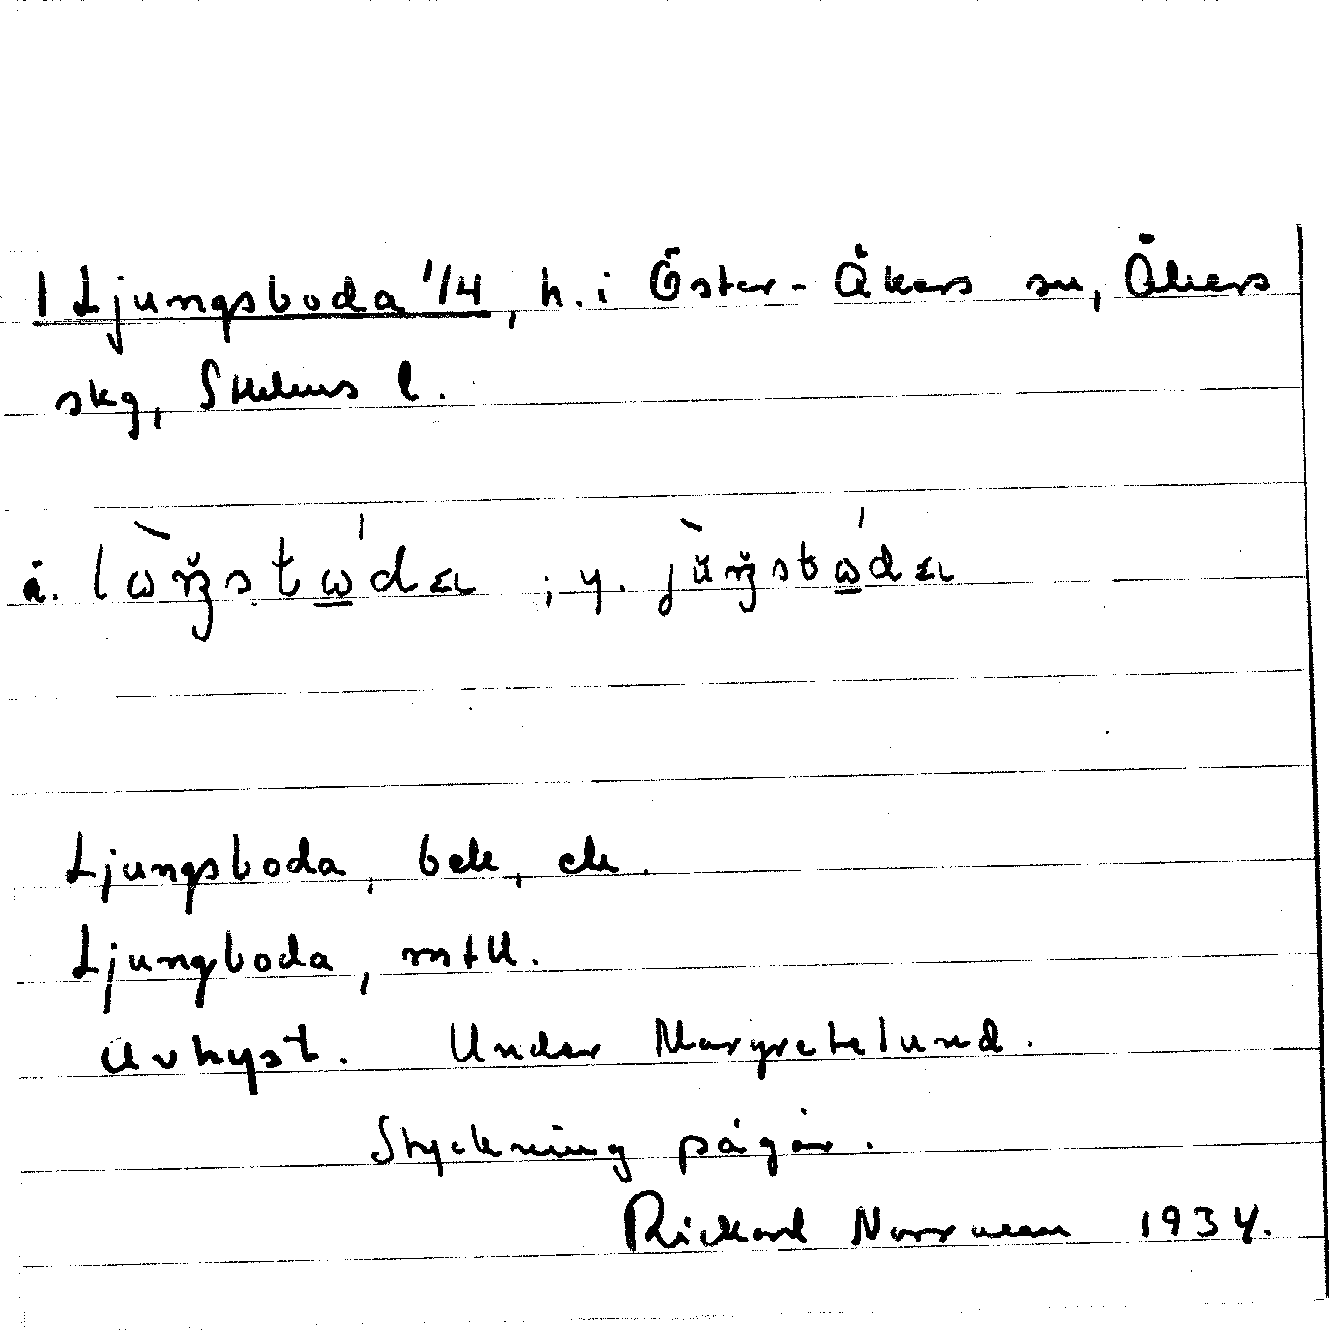 1 Ljungsboda 1/4, h. i Öster-Åkers sn, Åkers
skg, Sthlms l.
å. ; y.
Ljungsboda, bek, ek.
Ljungboda, mtl.
Avhyst. Under Margretelund.
Styckning pågår.
Rickard Norrman 1934.